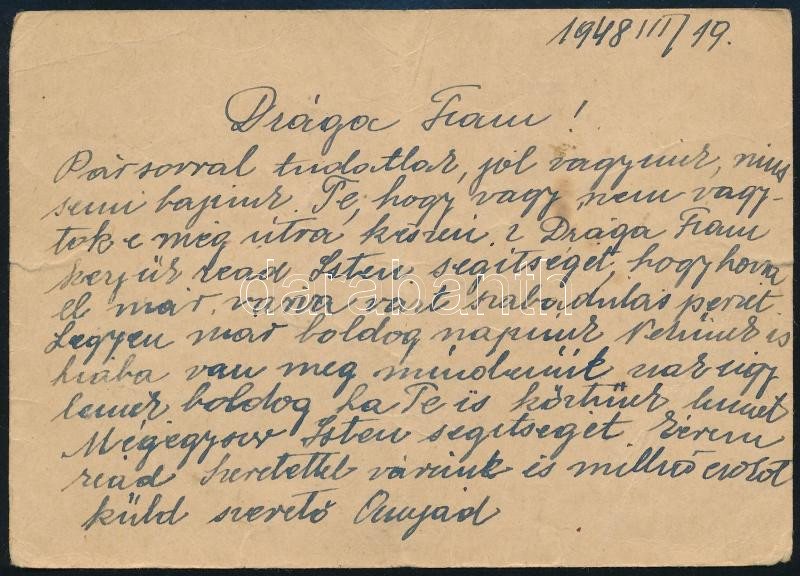 1948 III/19.
Drága Fiam!
Pár sorral tudatlak, jól vagyunk, nincs
semi bajunk. Te, hogy vagy, nem vagy-
tok e még útra készen? Drága Fiam
kérjük read Isten segitségét, hogy hozza
el már, várva várt szabadulás percét.
Legyen már boldog napunk Nekünk is
hiába van meg mindenünk csak úgy
lenek boldog ha Te is köztünk
Mégégyszer Isten segitségét kérem
réád szeretettel várunk és millió csókot
küld szerető Anyád
darabanth